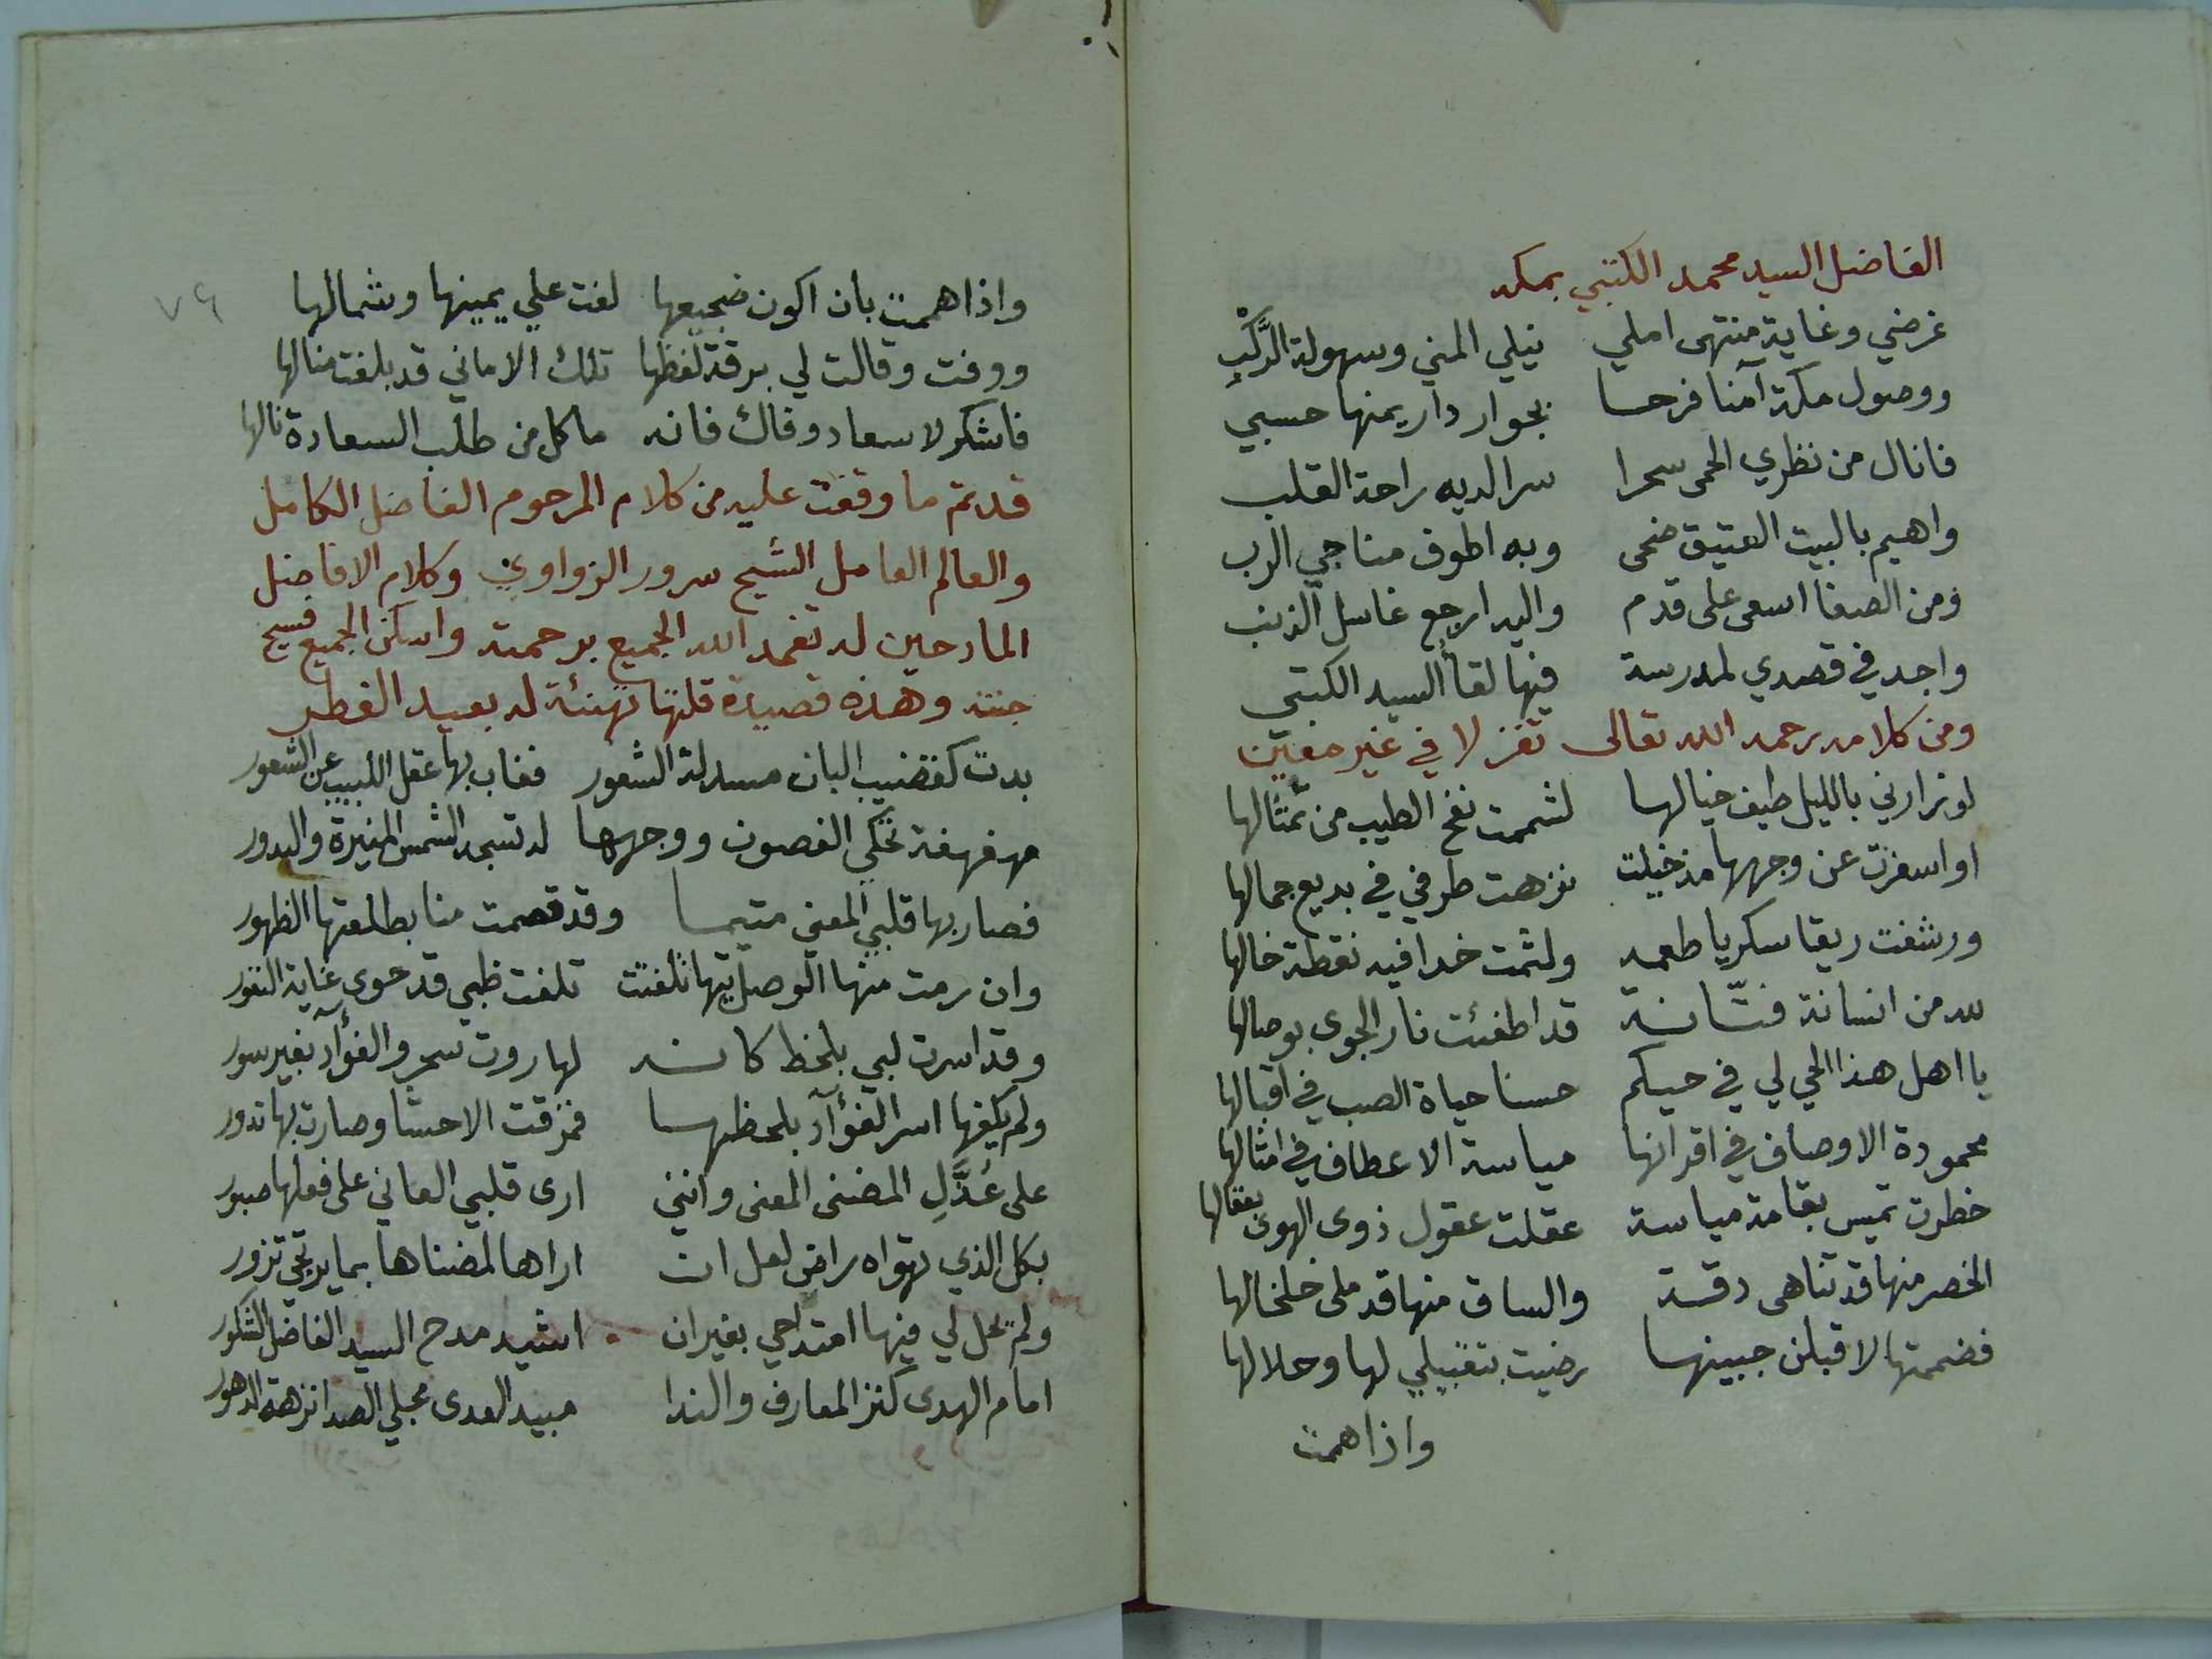 الفاضل السيد محمد الكتبي بمكه
غرضي وغاية منتهى املي نيلي المني وسهولة الرَّكْبِ
ووصول مكة آمنا فرحا بجوار دار يمنها حسبي
فانال من نظري الحمى سحرا سرا لديه راحة القلب
واهيم بالبيت العتيق ضحى وبه اطوف مناجي الرب
ومن الصفا اسعى على قدم واليه ارجع غاسل الذنب
واجد في قصدي لمدرسة فيها لقا السيد الكتبي
ومن كلامه رحمه الله تعالى تغزلا في غير معين
لو زارني بالليل طيف خيالها لشممت نفح الطيب من تمثالها
او اسفرت عن وجهها مذ خيلت نزهت طرفي في بديع جمالها
ورشفت ريقا سكريا طعمه ولثمت خدا فيه نقطة خالها
لله من انسانة فتّانة قد اطفئت نار الجوى بوصالها
يا اهل هذا الحي لي في حبكم حسنا حياة الصب في اقبالها
محمودة الاوصاف في اقرانها مياسة الاعطاف في امثالها
خطرت تميس بقامة مياسة عقلت عقول ذوى الهوى بعقالها
الخصر منها قد تناهى دقة والساق منها قد ملى خلخالها
فضممتها لاقبلن جبينها رضيت بتقبيلي لها وحلالها
واذا همت
٧٩
واذا هممت بان اكون ضجيعها لفت علي يمينها وشمالها
ووفت وقالت لي برقة لفظها تلك الاماني قد بلغت منالها
فاشكر لاسعاد وفاك فانه ما كل من طلب السعادة نالها
قد تم ما وقفت عليه من كلام المرحوم الفاضل الكامل
والعالم العامل الشيخ سرور الزواوي وكلام الافاضل
المادحين له تغمد الله الجميع برحمته واسكن الجميع فسيح
جنته وهذه قصيدة قلتها تهنئة له بعيد الفطر
بدت كقضيب البان مسدلة الشعور فغاب بها عقل اللبيب عن الشعور
مهفهفة تحكي الغصون ووجهها له تسجد الشمس المنيرة والبدور
فصار بها قلبي المعني متيما وقد قصمت منا بطلعتها الظهور
وان رمت منها الوصل تيها تلفتت تلفت ظبي قد حوى غاية النفور
وقد اسرت لبي بلحظ كانه لهاروت سحر والفؤآد بغير سور
ولم يكفها اسر الفؤآد بلحظها فمزقت الاحشا وصارت بها تدور
على عُذَّلِ المضنى المعنى وانني ارى قلبي العاني على فعلها صبور
بكل الذي تهواه راض لعل ان اراها لمضناها بما يرتجي تزور
ولم يحل لي فيها امتداحي بغير ان اشيد مدح السيد الفاضل الشكور
امام الهدى كنز المعارف والندا مبيد العدى مجلي الصدا نزهة الدهور